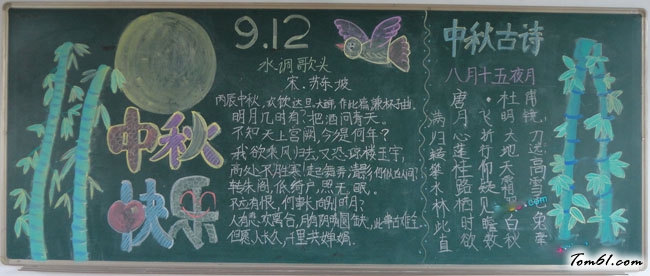 中秋
快乐
9.12
水调歌头
宋.苏东坡
丙辰中秋,欢饮达旦,大醉,作此篇,兼怀子由。
明月几时有?把酒问青天。
不知天上宫阙,今是何年?
我欲乘风归去,又恐琼楼玉宇,
高处不胜寒!起舞弄清影,何似在人间?
转朱阁,低绮户,照无眠。
不应有恨,何事长向别时圆?
人有悲欢离合,月有阴晴圆缺,此事古难全。
但愿人长久,千里共婵娟。
中秋古诗
八月十五夜月
唐·杜甫
满月飞明镜
归心折大刀
转蓬行地远
攀桂仰天高
水路疑霜雪
林栖见羽
此时瞻白兔
直欲数秋毫
Tom61.com